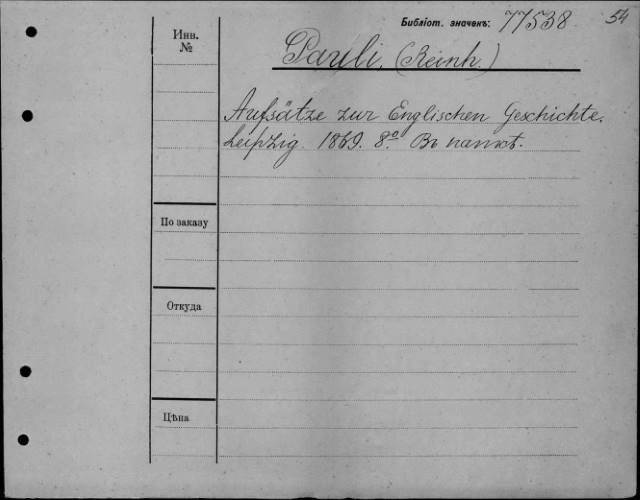 Библіот. значекъ: 77538 54
Инв. №
Pauli, (Reinh.)
Aufsätze zur Englischen Geschichte.
Leipzig. 1869. 8º Въ папкѣ.
По заказу
Откуда
Цѣна